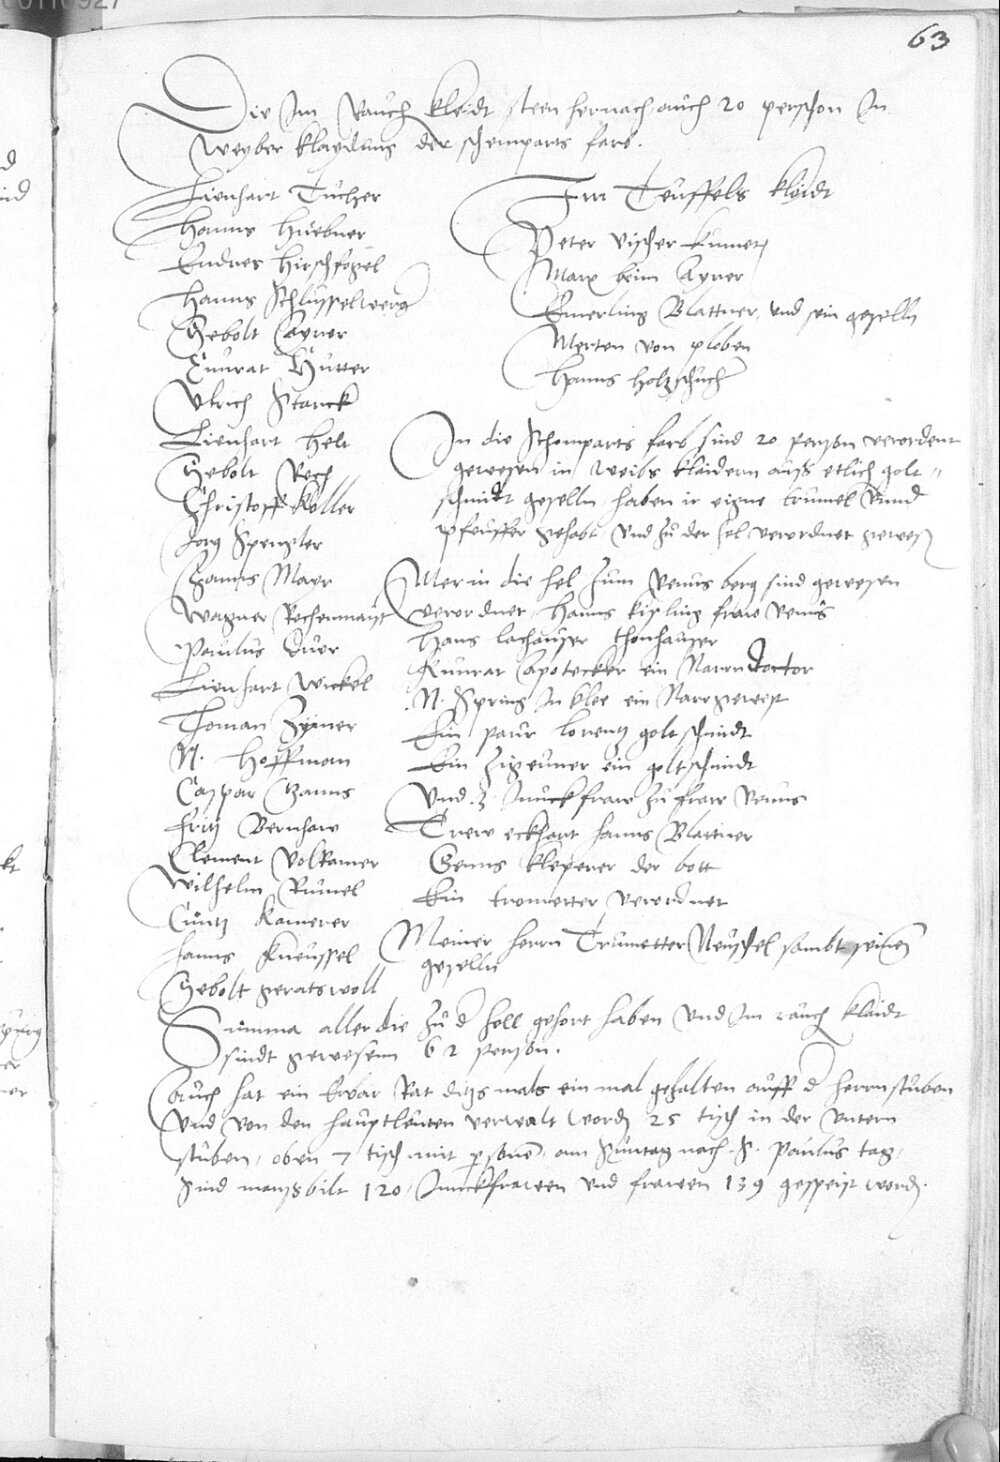 63
Die Im Rauch kleidt steen hernach auch 20 person In
weyber klaydung der schemparts farb.
Lienhart Tucher
Hanns Hüebner
Endres Hirschfogel
Hanns Schlüsselberg
Sebolt Layner
Cunrat Hutter
Ulrich Starck
Lienhart Helt
Sebolt Rech
Christoff Koller
Jorg Spengler
Hanns Maer
Wagner Rechenmaist
Paulus
Lienhart Wickel
Toman
N. Hoffman
Caspar Hanns
Fritz Bernhart
Clement Volkamer
Wilhelm Rumel
Cuntz Kamerer
Hanns Kneussel
Sebolt geratswoll
Im Teuffels kleidt
Peter Vischer
Marx beim Layner
Emerling Blattner, und sein geselln
Merten von ploben
Hanns Holtzschucher
In die Schemparts farb sind 20 person verordent
gewesen in weibs klaidern auss etlich golt-
schmidt geselln haben ir eigne trumel Unnd
pfeuffer gehabt, Und zu der hel verordnet gewest
Mer in die hel zum Venus berg sind gewesen
verordnet, Hanns kisling fraw Venus
Hans lachauser thonhauser
Kunrat apotecker ein Narrn doctor
N. Spring In klee ein Narr gewest
Ein paur lorentz golt schmidt
Ein zigeuner ein goltschmidt
Und 2 Junckfraw zu fraw Venus
Trew eckhart hanns Blattner
Hanns kleperer der bott
Ein trometter verordnet
Meiner herrn Trumetter Neuschel sambt seinen
geselln
Summa aller die zu d hell gehort haben Und Im rauch klaidt
sindt gewesenn 62 person.
Auch hat ein Erbar Rat ditzs mals ein mal gehalten auff d herrn stuben
Und von den hauptleuten verwalt word 25 tisch in der untern
stuben, oben 7 tisch mit personen, am Suntag nach S. Paulus tag,
Sind mansbilt 120, Junckfrawen und frawen 139 gespeist word.